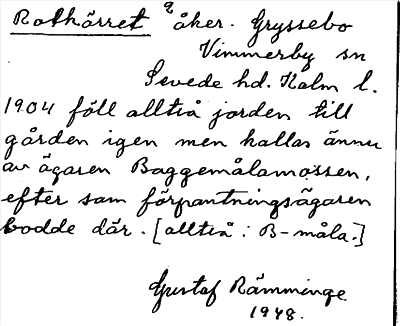 Rothärret åker. Gryssebo
Vimmerby sn
Sevede hd. Kalm l.
1904 föll alltså jorden till
gården igen men kallas ännu
av ägaren Baggemålamossen,
efter som förpantningsägaren
bodde där. [alltså: B-måla.]
Gustaf Rämminge
1948.